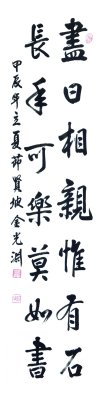 盡日相親惟有石
長年可樂莫如書
甲辰年立夏節賢坡金光淵